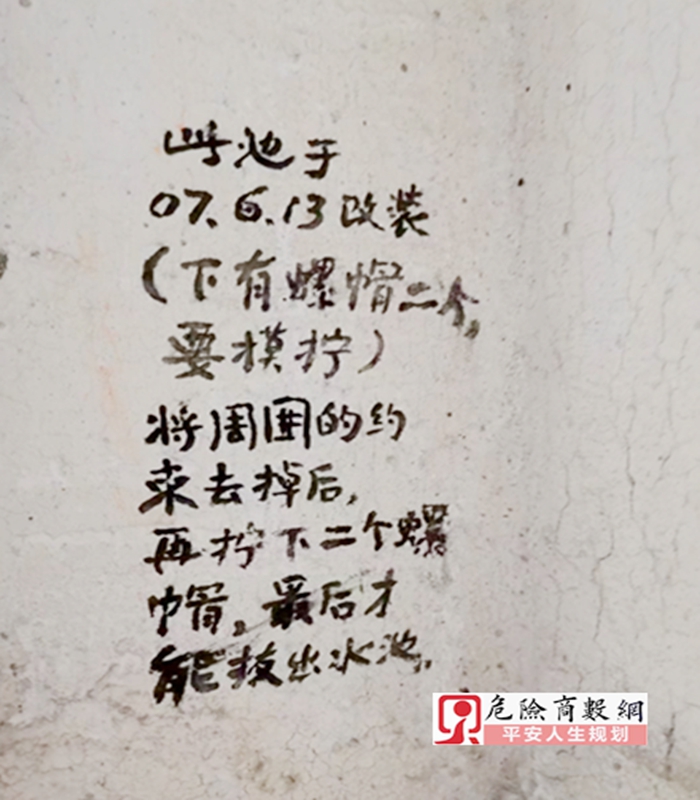 此池于
07.6.13改装
(下有螺帽二个,
要摸拧)
将周围的约
束去掉后,
再拧下二个螺
帽。最后才
能拔出水池.
危險商數網
平安人生规划